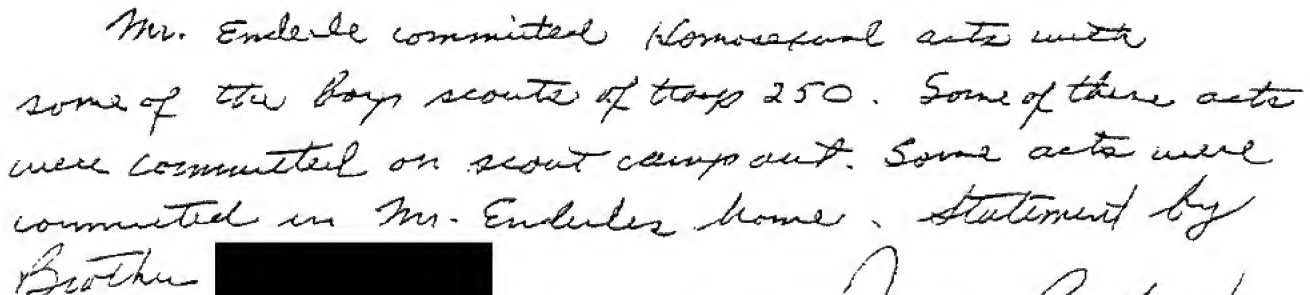 Mr. Enderle committed Homosexual acts with
some of the Boys scouts of troop 250. Some of these acts
were committed on scout camp out. Some acts were
committed in Mr. Enderles home. Statement by
Brother